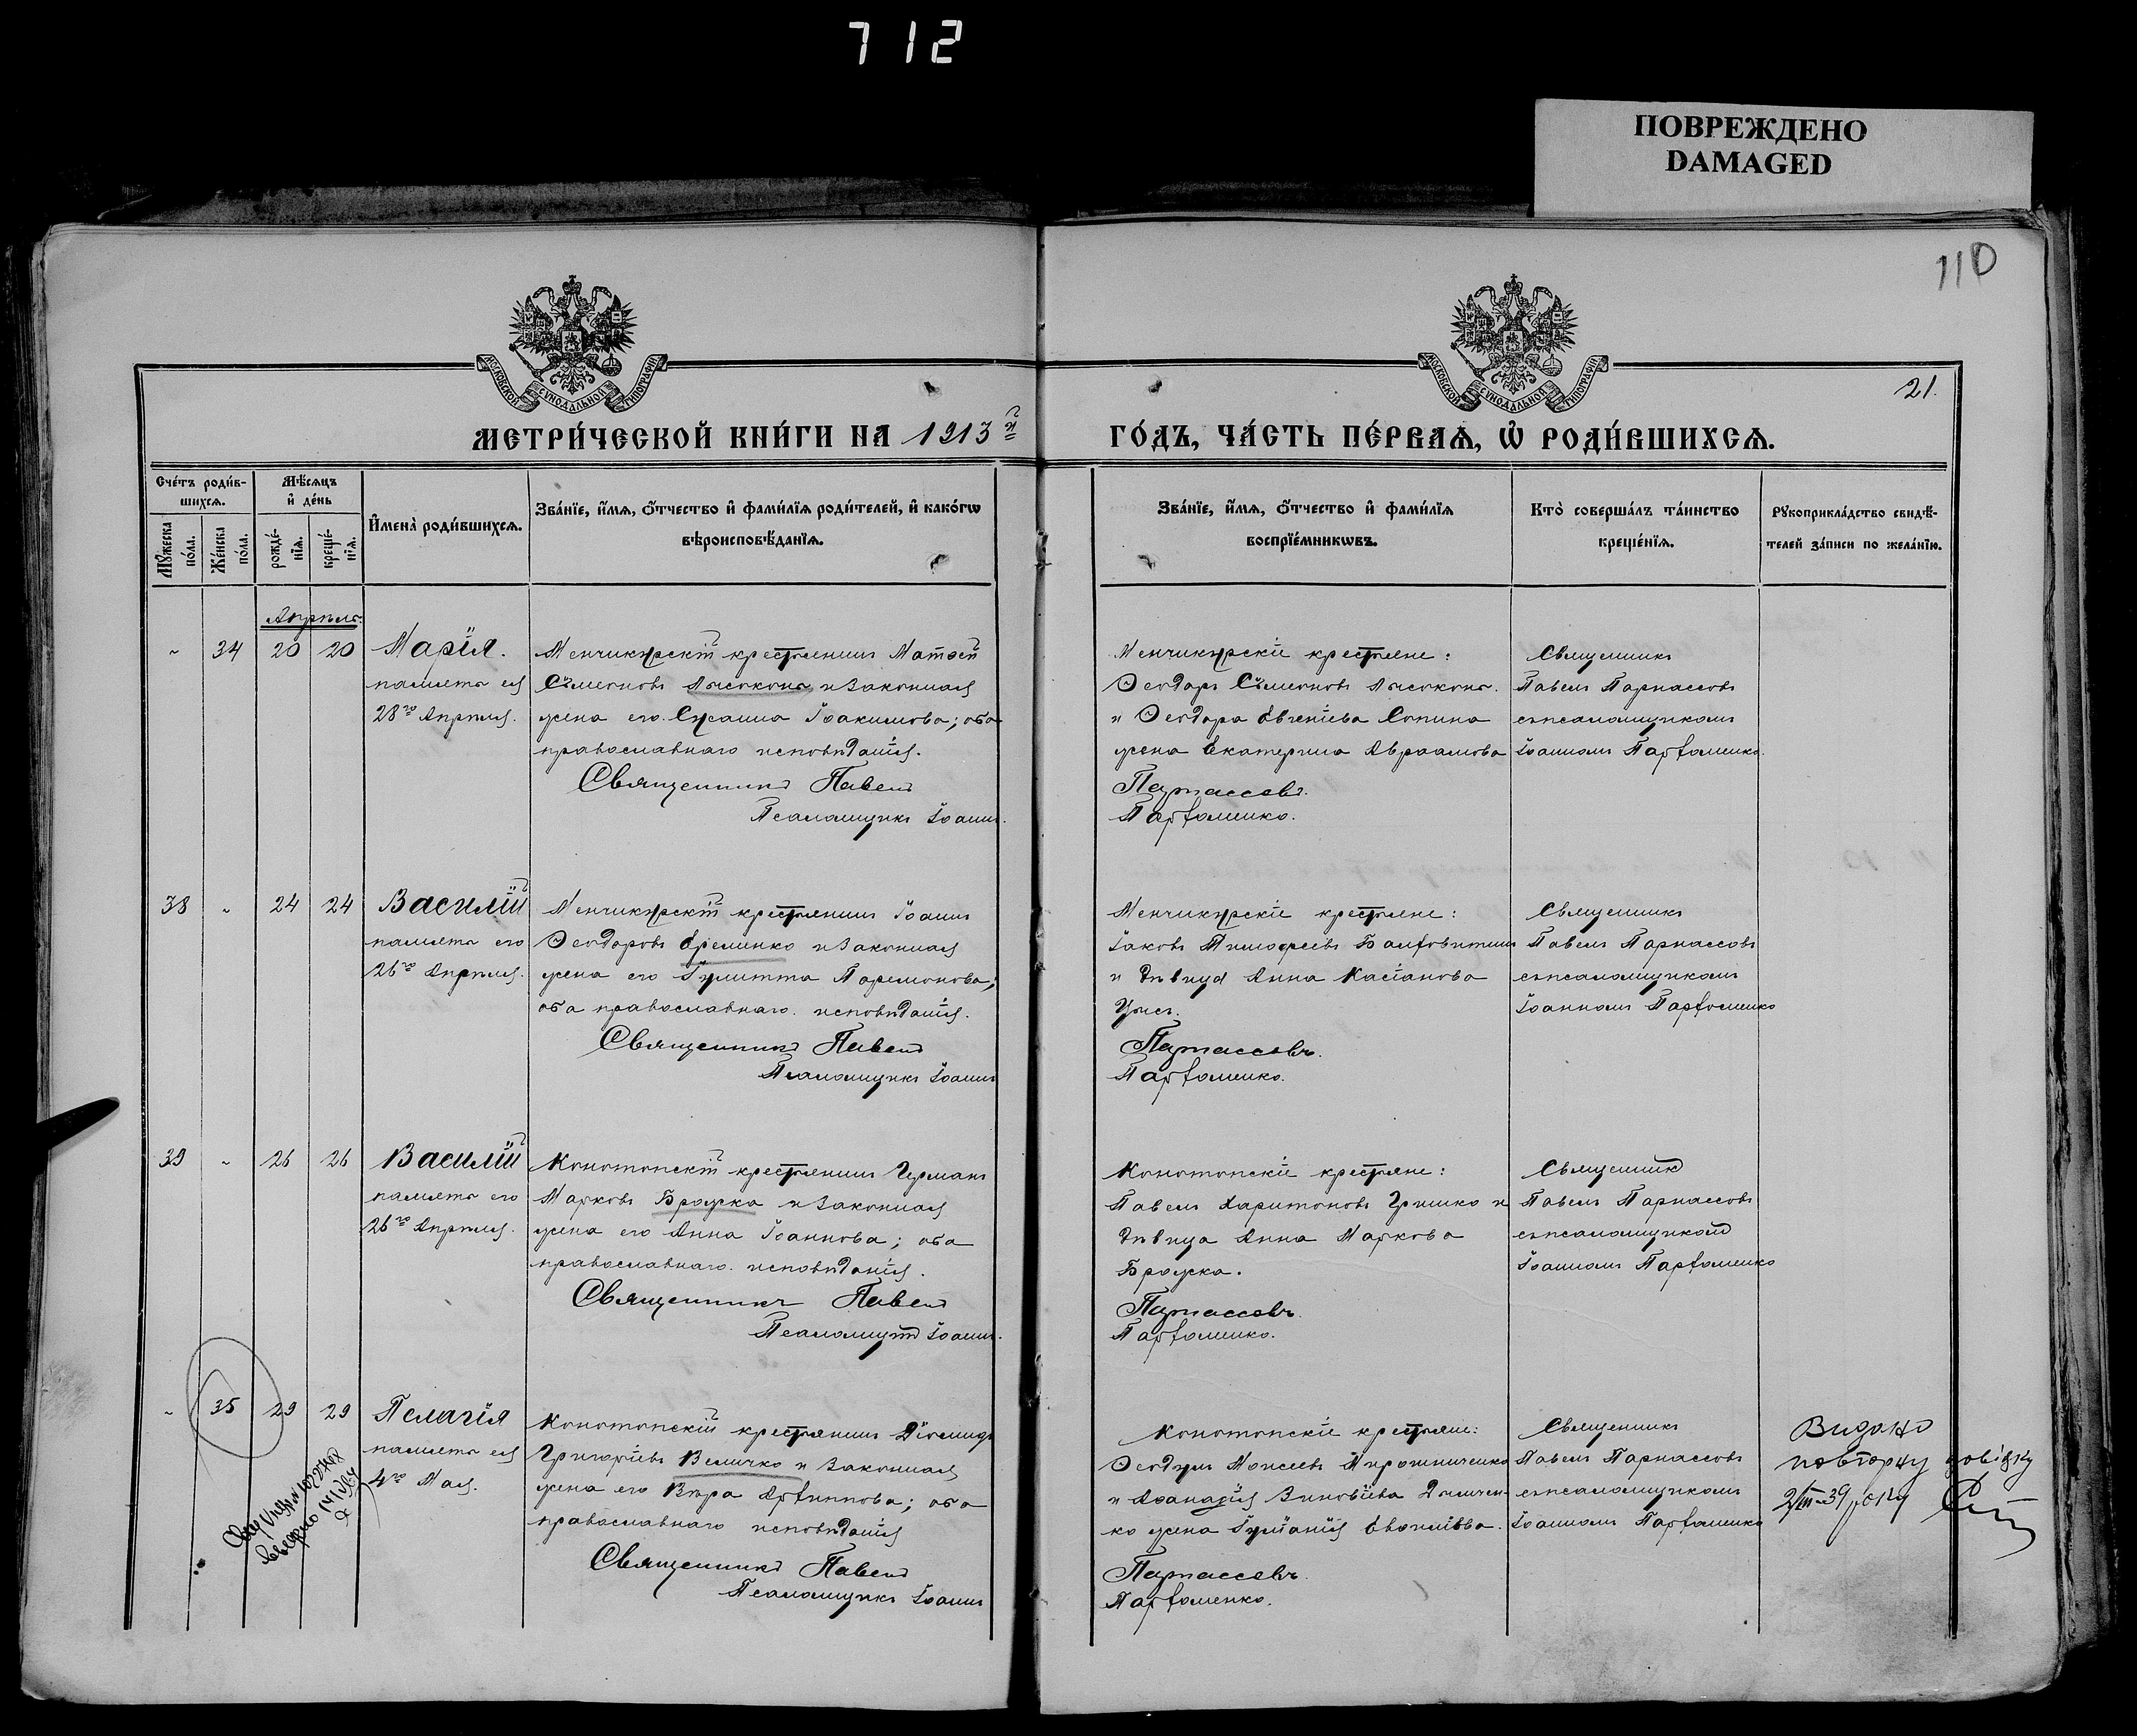 712
ПОВРЕЖДЕНО
DAMAGED
110
21.
МОСКОВСКОЙ СУНОДАЛЬНОЙ ТИПОГРАФІИ
МОСКОВСКОЙ СУНОДАЛЬНОЙ ТИПОГРАФІИ
МЕТРИ́ЧЕСКОЙ КНИ́ГИ НА 1913й
ГО́ДЪ, ЧА́СТЬ ПЕ́РВАѦ, Ѽ РОДИ́ВШИХСѦ.
Сче́тъ роди́в-
шихсѧ.
Мѣ́сѧцъ
и҆ де́нь
Мꙋ́жеска по́ла.
Же́нска по́ла.
рожде́-
нїѧ.
креще́-
нїѧ.
И҆мена̀ роди́вшихсѧ.
Зва́нїе, и҆́мѧ, ѻ҆́тчество и҆ фами́лїѧ роди́телей, и҆ како́гѡ
вѣроисповѣ́данїѧ.
Зва́нїе, и҆́мѧ, ѻ҆́тчество и҆ фами́лїѧ
воспрїе́мникѡвъ.
Кто̀ соверша́лъ та́инство
креще́нїѧ.
Рꙋкоприкла́дство свидѣ́-
телей за́писи по жела́нїю.
Апрѣль
34 20 20 Марія.
память ея
28го Апрѣля.
Менчикурскій крестьянинъ Матѳей
Сѵмеоновъ Лысоконь и законная
жена его Сусанна Іоакимова; оба
православнаго исповѣданія.
Священникъ Павелъ
Псаломщикъ Іоаннъ
Менчикурскіе крестьяне:
Ѳеодоръ Сѵмеоновъ Лысоконь.
и Ѳеодора Евгеніева Сопина
жена Екатерина Авраамова
Парнассовъ.
Парфоменко.
Священникъ
Павелъ Парнассовъ
съ псаломщикомъ
Іоанномъ Парфоменко.
38 24 24 Василій
память его
26го Апрѣля.
Менчикурскій крестьянинъ Іоаннъ
Ѳеодоровъ Еременко и законная
жена его Іулитта Парамонова;
оба православнаго исповѣданія.
Священникъ Павелъ
Псаломщикъ Іоаннъ
Менчикурскіе крестьяне:
Іаковъ Тимоѳеевъ
и дѣвица Анна Касіанова
Парнассовъ.
Парфоменко.
Священникъ
Павелъ Парнассовъ
съ псаломщикомъ
Іоанномъ Парфоменко
39 26 26 Василій
память его
26го Апрѣля.
Конотопскій крестьянинъ Германъ
Марковъ Бражка и законная
жена его Анна Іоаннова; оба
православнаго исповѣданія.
Священникъ Павелъ
Псаломщикъ Іоаннъ.
Конотопскіе крестьяне:
Павелъ Харитоновъ Гришко и
дѣвица Анна Маркова
Бражка.
Парнассовъ.
Парфоменко.
Священникъ
Павелъ Парнассовъ
съ псаломщикомъ
Іоанномъ Парфоменко
35 29 29 Пелагія
память ея
4го Мая.
Конотопскій крестьянинъ Діомидъ
Григоріевъ Величко и законная
жена его Вѣра Архиппова; оба
православнаго исповѣданія
Священникъ Павелъ
Псаломщикъ Іоаннъ
Конотопскіе крестьяне:
Ѳеодулъ Моисеевъ Мирошниченко
и Аѳанасія Зиновіева
ко жена Іуліанія
Парнассовъ.
Парфоменко.
Священникъ
Павелъ Парнассовъ
съ псаломщикомъ
Іоанномъ Парфоменко
Видано
повторну довідку
2/III-39 року